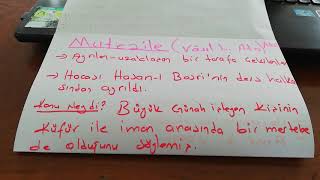 Mutezile (Vasıl b. Ata)
→ Ayrılan-uzaklaşan bir tarafa çekilenler
→ Hocası Hasan-ı Basri'nin ders halka
sından ayrıldı.
Konu Neydi? Büyük Günah işleyen kişinin
Küfür ile iman arasında bir mertebe
de olduğunu söylemiş.